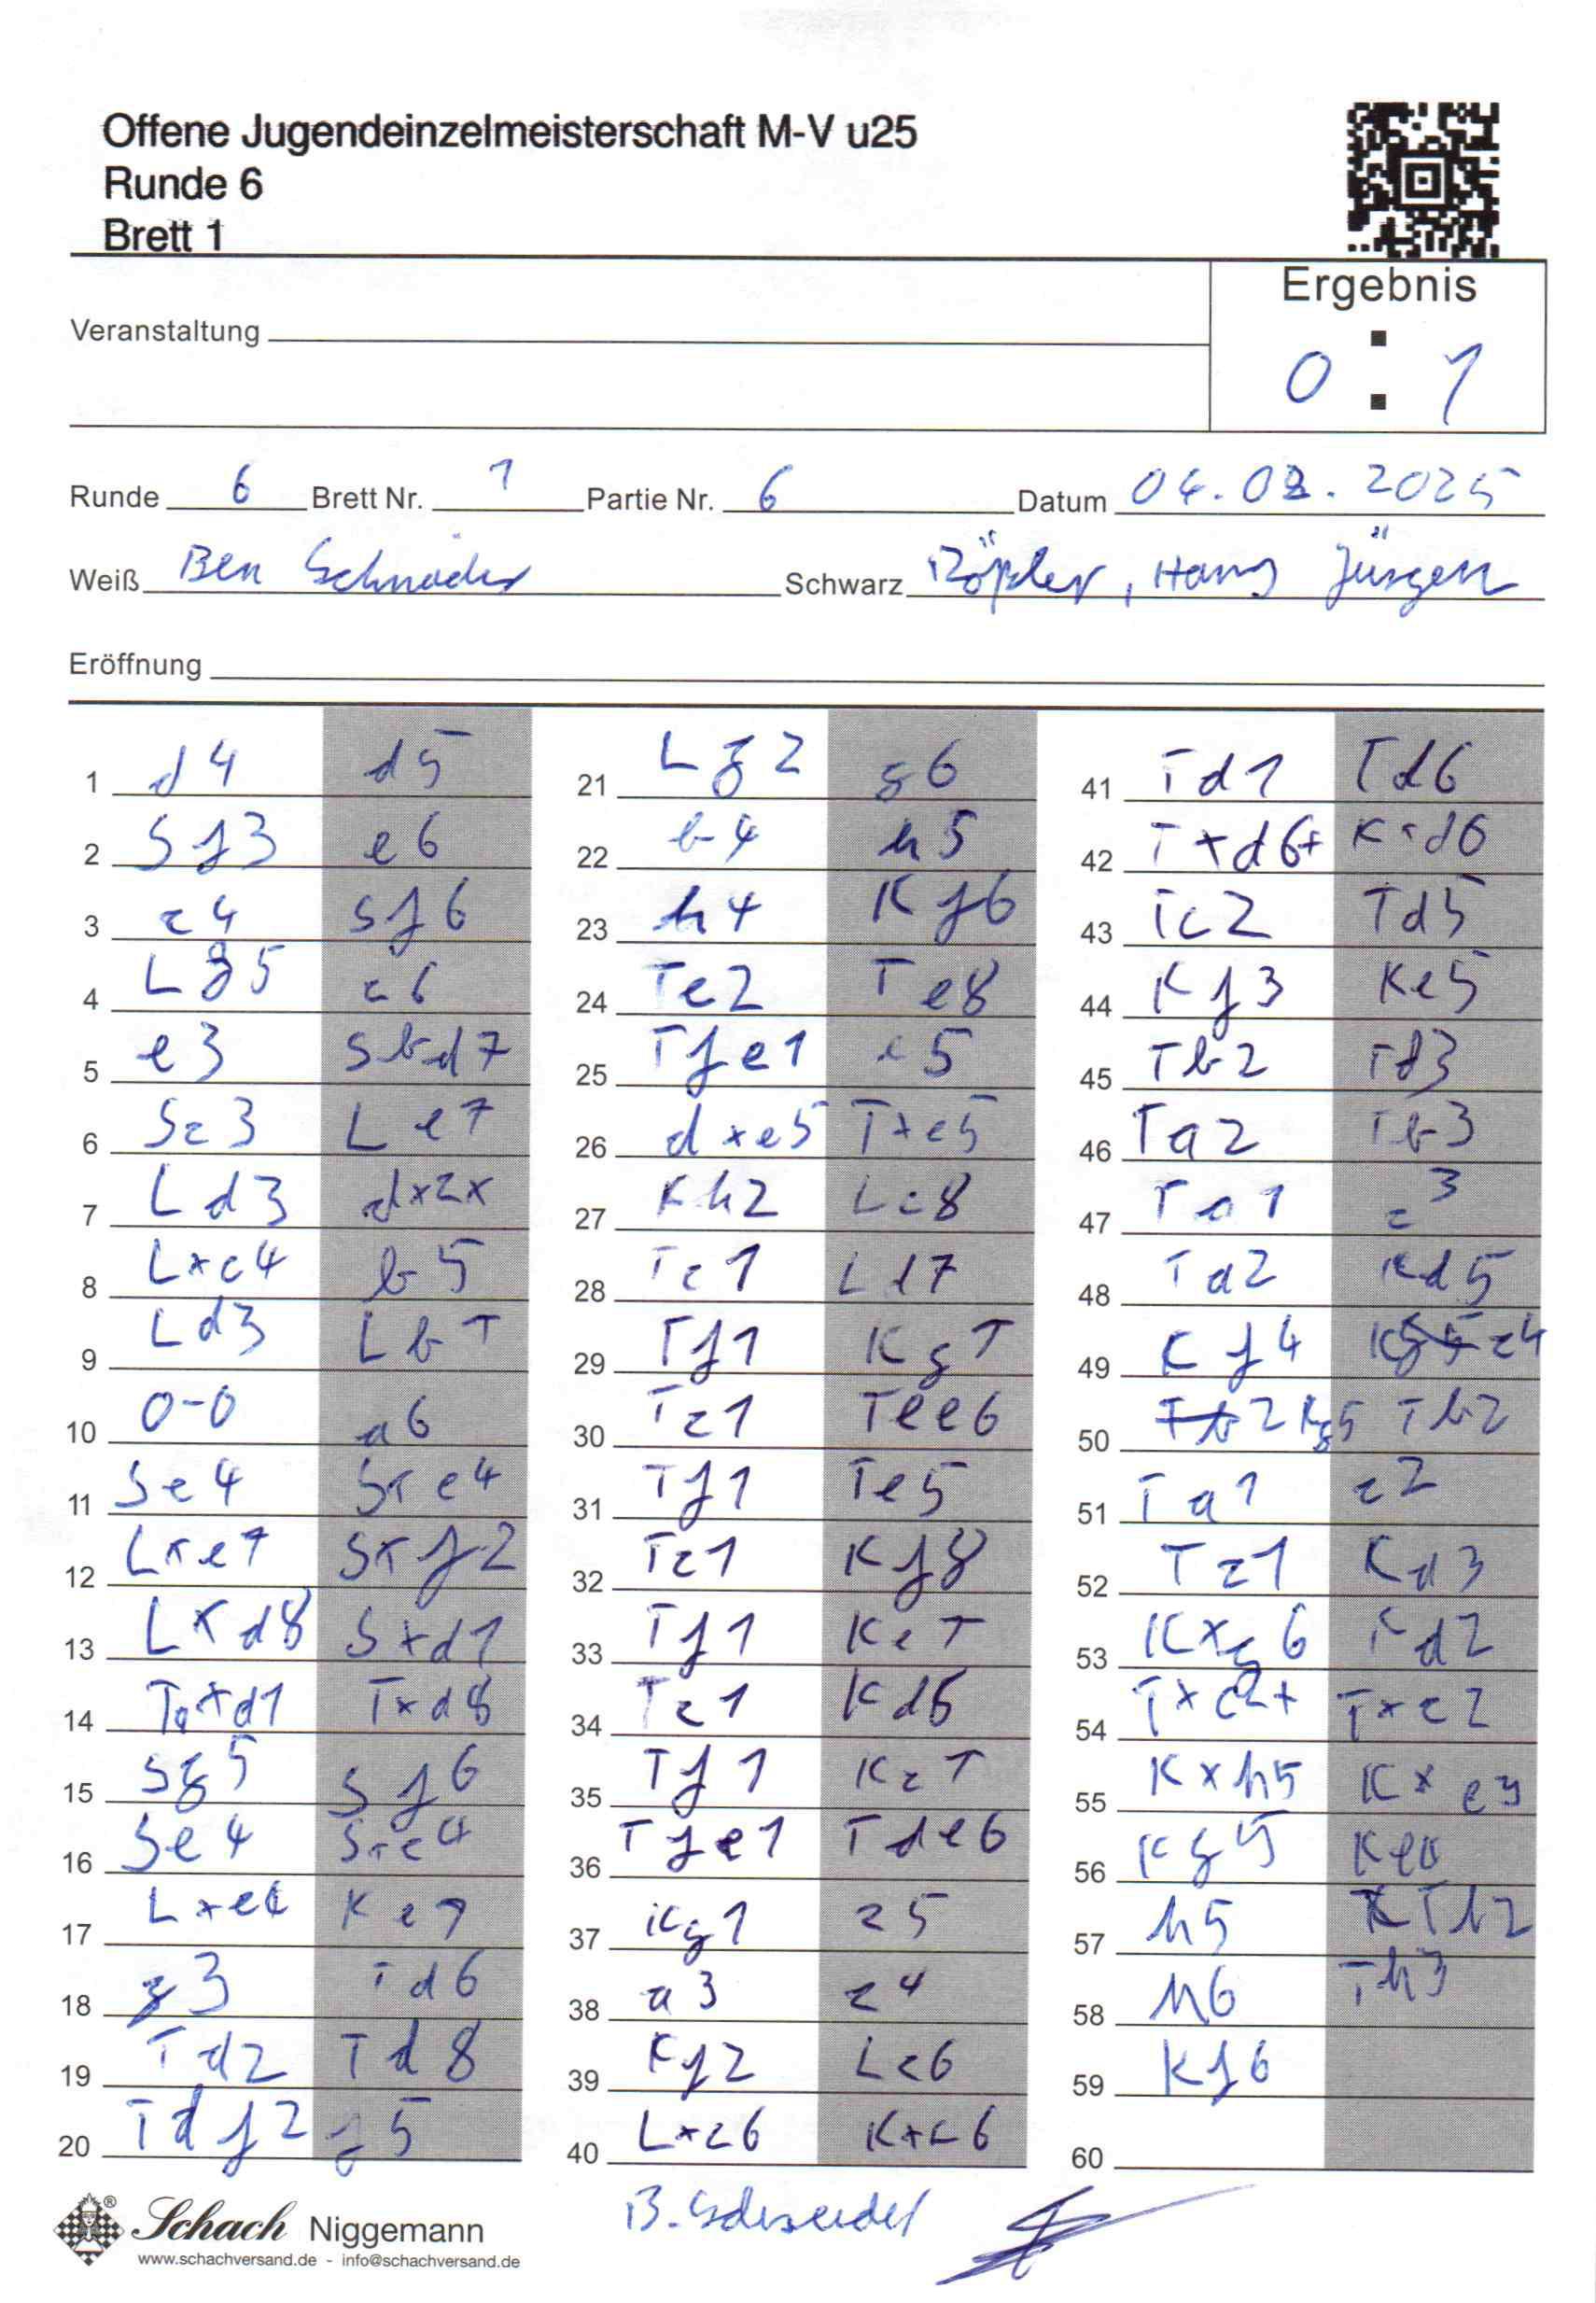 Offene Jugendeinzelmeisterschaft M-V u25
Runde 6
Brett 1
Ergebnis
0 : 1
Veranstaltung
Runde 6 Brett Nr. 1 Partie Nr. 6 Datum 04.02.2025
Weiß Ben Schneider Schwarz Hans Jürgen
Eröffnung
1 d4 d5
2 Sf3 e6
3 c4 Sf6
4 Lg5 c6
5 e3 Sbd7
6 Sc3 Le7
7 Ld3 dxcx
8 Lxc4 b5
9 Ld3 Lb7
10 0-0 a6
11 Se4 Sxe4
12 Lxe7 Sxf2
13 Lxd8 Sxd1
14 Taxd1 Txd8
15 Sg5 Sf6
16 Se4 Sxe4
17 Lxe4 Ke7
18 g3 Td6
19 Td2 Td8
20 Tdf2 f5
21 Lg2 g6
22 b4 h5
23 h4 Kf6
24 Te2 Te8
25 Tfe1 e5
26 dxe5 Txe5
27 Kh2 Lc8
28 Tc1 Ld7
29 Tf1 Kg7
30 Tc1 Tee6
31 Tf1 Te5
32 Tc1 Kf8
33 Tf1 Ke7
34 Tc1 Kd8
35 Tf1 Kc7
36 Tfe1 Tde6
37 Kg1 c5
38 a3 c4
39 Kf2 Lc6
40 Lxc6 Kxc6
41 Td1 Td6
42 Txd6+ Kxd6
43 Tc2 Td5
44 Kf3 Ke5
45 Tb2 Td3
46 Ta2 Tb3
47 Ta1 c3
48 Ta2 Kd5
49 Kf4 Kc4
50 Kg5 Tb2
51 Ta1 c2
52 Tc1 Kd3
53 Kxg6 Kd2
54 Txc2+ Txc2
55 Kxh5 Kxe3
56 Kg5 Ke4
57 h5 Th2
58 h6 Th3
59 Kf6
60
B. Schneider
Schach Niggemann
www.schachversand.de - info@schachversand.de